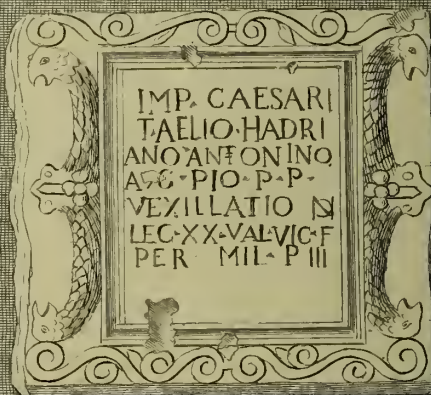 IMP. CAESARI
T.AELIO.HADRI
ANO ANTONINO
AVG.PIO.P.P.
VEXILLATIO
LEG.XX.VAL.VIC.F
PER MIL.P III